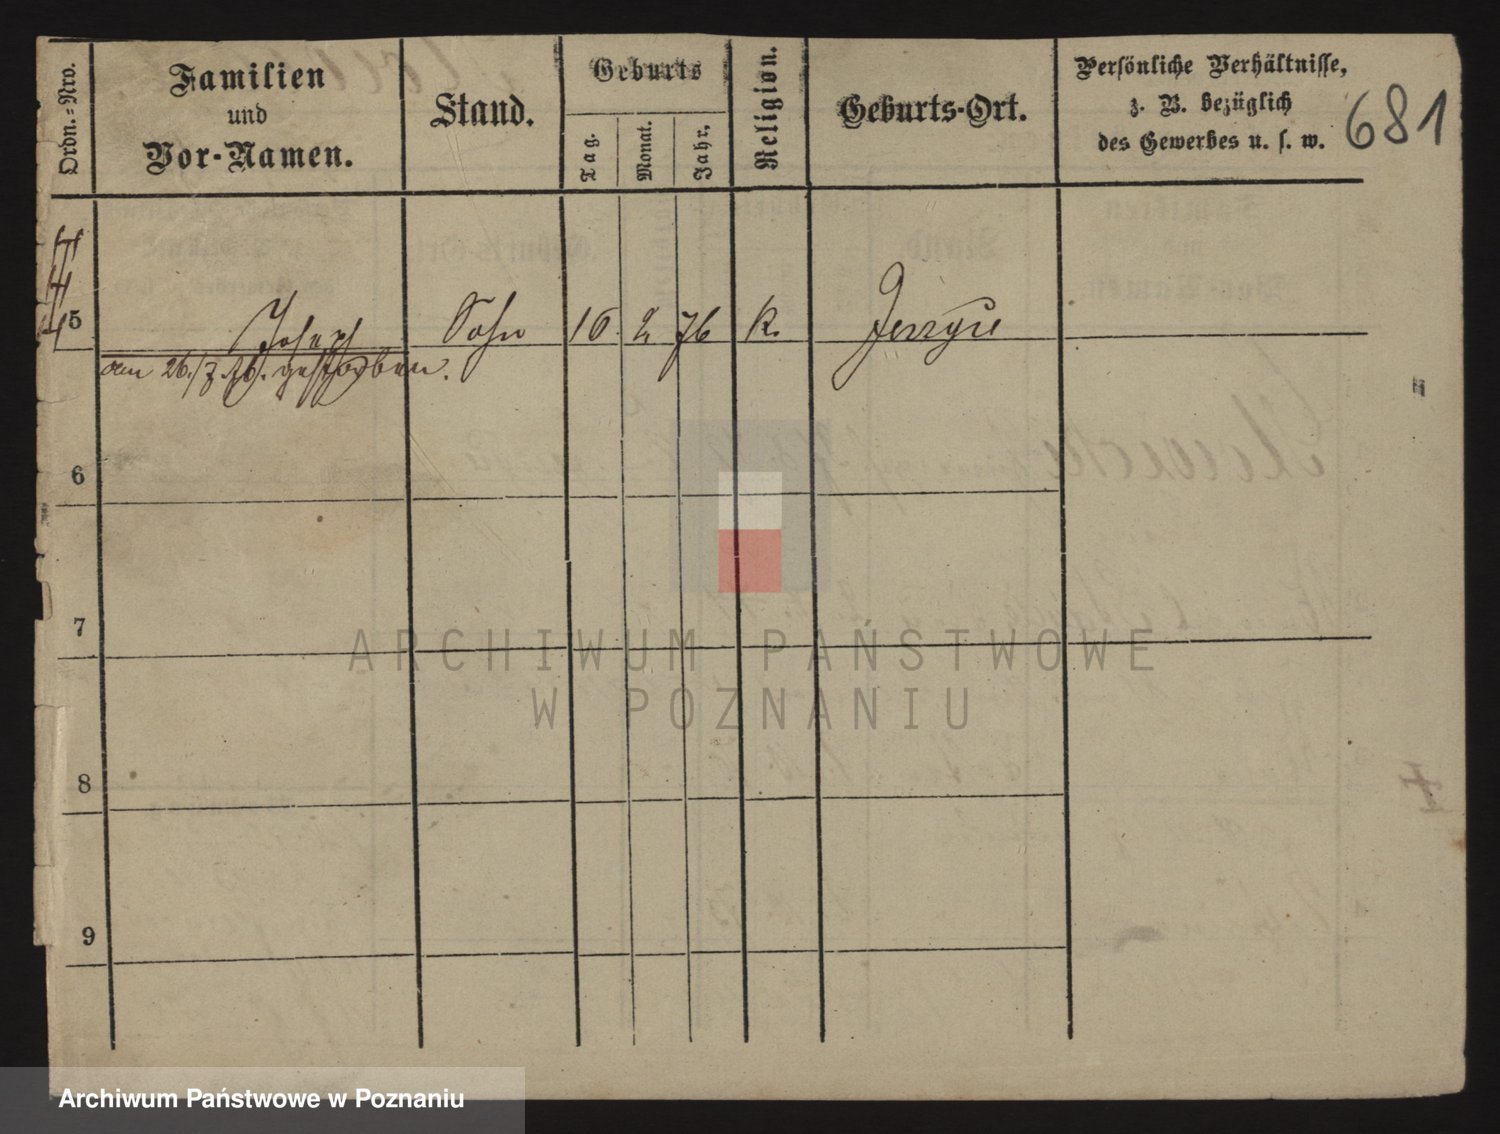 Ordn.-Nro.
Familien
und
Vor-Namen.
Stand.
Geburts
Tag.
Monat.
Jahr.
Religion.
Geburts-Ort.
Persönliche Verhältnisse,
z. B. bezüglich
des Gewerbes u. s. w.
681
5 Joseph Sohn 16. 2. 76 k. Jerzyce
am 26./7. 76. gestorben.
6
7
8
9
ARCHIWUM PAŃSTWOWE
W POZNANIU
Archiwum Państwowe w Poznaniu